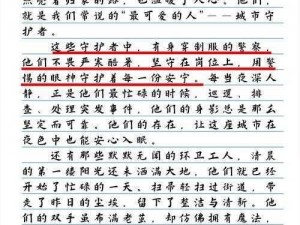 照亮着归家的路，也温暖了人心。他们，就
是我们常说的“最可爱的人”——城市守
护者。
这些守护者中，有身穿制服的警察，
他们不畏严寒酷暑，坚守在岗位上，用警
惕的眼神守护着每一份安宁。每当夜深人
静，正是他们最忙碌的时候，巡逻、排
查、处理突发事件，他们的身影总是那么
坚定而可靠。他们的存在，让这座城市在
夜色中也能安心入眠。
还有那些默默无闻的环卫工人，清晨
的第一缕阳光还未洒满大地，他们就已经
开始了忙碌的一天。扫帚轻轻扫过街道，带
走了昨日的尘埃，留下了整洁与清新。他
们的双手虽布满老茧，却仿佛拥有魔法，